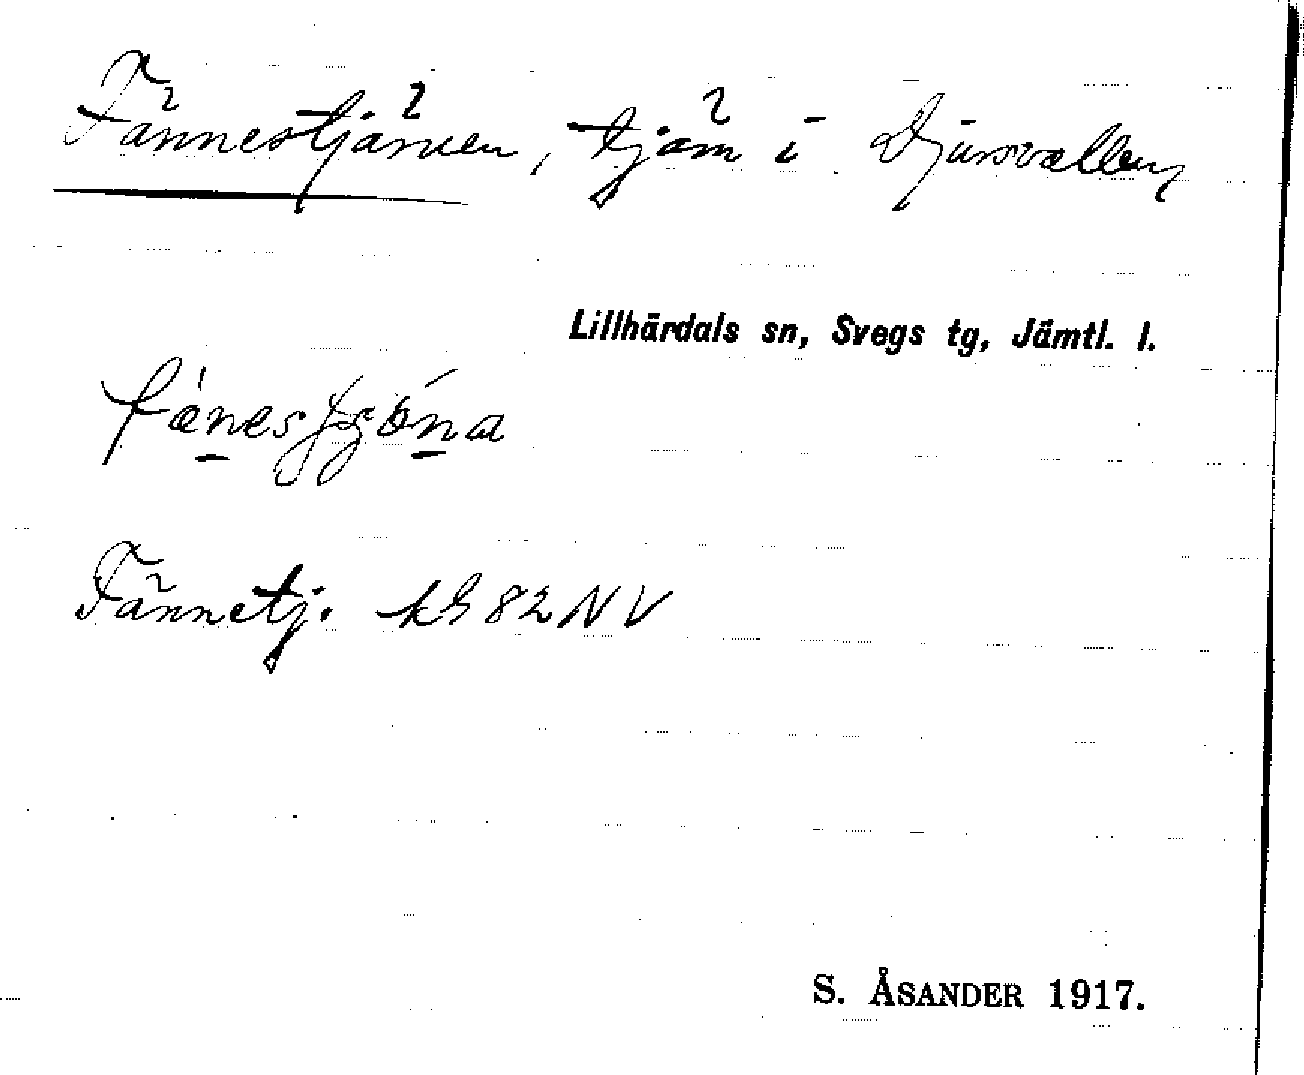 Fännestjärnen, tjärn i Djursvallen
Lillhärdals sn, Svegs tg, Jämtl. l.
Fännetj. kG 82 NV
S. ÅSANDER 1917.